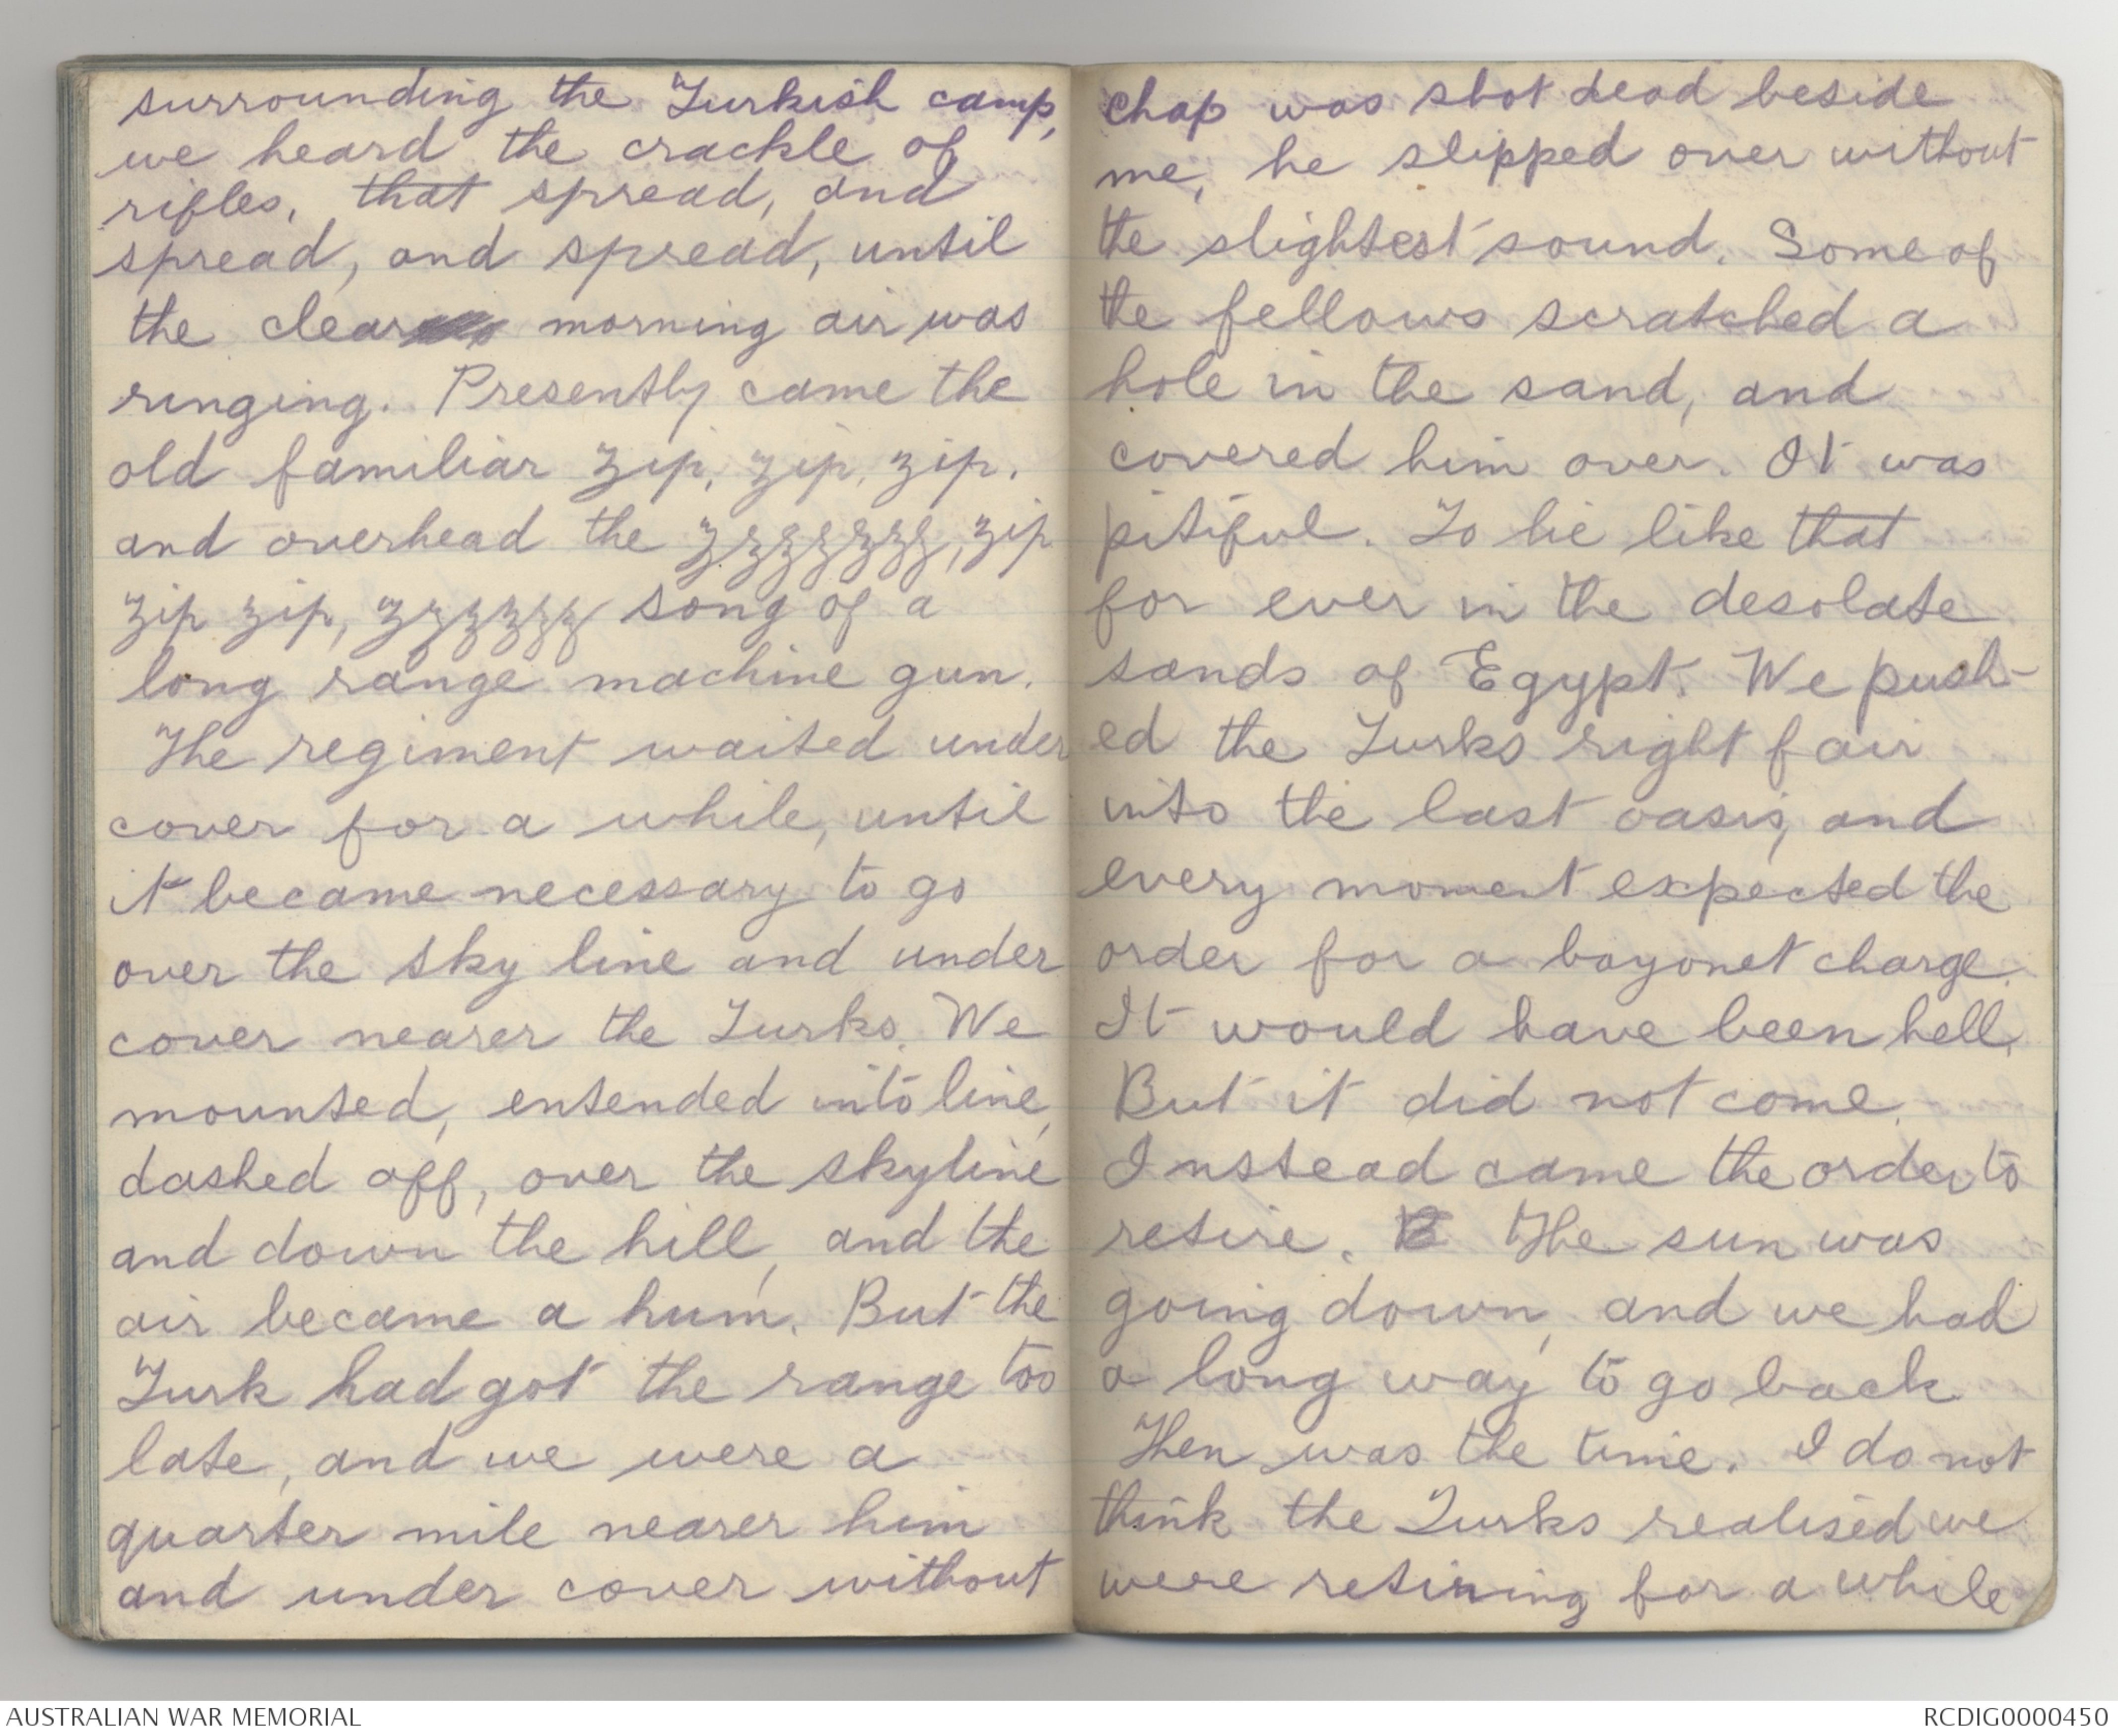 surrounding the Turkish camp,
we heard the crackle of
rifles, that spread, and
spread, and spread, until
the clear morning air was
ringing. Presently came the
old familiar zip, zip, zip.
and overhead the zzzzzzz, zip
zip zip, zzzzzz song of a
long range machine gun.
The regiment waited under
cover for a while, until
it became necessary to go
over the sky line and under
cover nearer the Turks. We
mounted, entended into line,
dashed off, over the skyline
and down the hill, and the
air became a hum. But the
Turk had got the range too
late, and we were a
quarter mile nearer him
and under cover without
chap was shot dead beside
me, he slipped over without
the slightest sound. Some of
the fellows scratched a
hole in the sand, and
covered him over. It was
pitiful. To lie like that
for ever in the desolate
sands of Egypt. We push-
ed the Turks right fair
into the last oasis, and
every moment expected the
order for a bayonet charge.
It would have been hell.
But it did not come.
Instead came the order to
retire. B The sun was
going down, and we had
a long way to go back
Then was the time. I do not
think the Turks realised we
were retiring for a while
AUSTRALIAN WAR MEMORIAL
RCDIG0000450